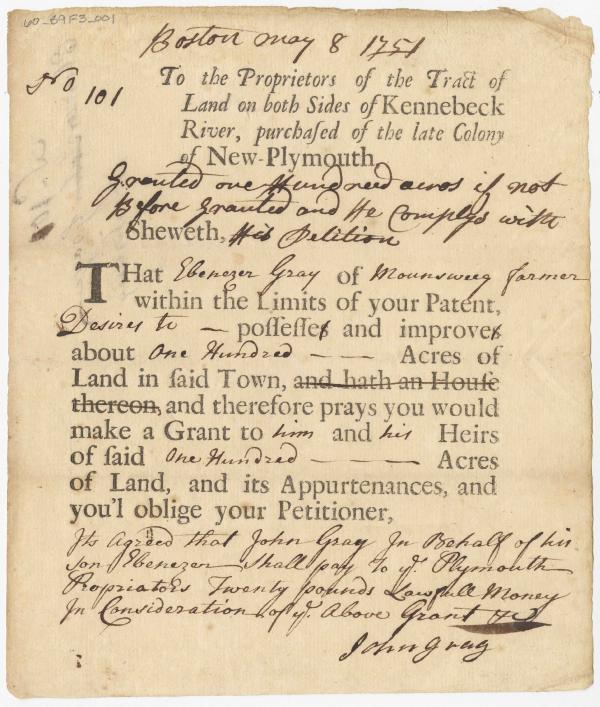 60-59F3-001
Boston may 8 1751
No 101
To the Proprietors of the Tract of
Land on both Sides of Kennebeck
River, purchaſed of the late Colony
of New-Plymouth
Granted one Hundreed acros if not
Before Granted and He Complys with
Sheweth, His Petition
THat Ebenezer Gray of Mounsweeg farmer
within the Limits of your Patent,
Desires to — poſſeſſes and improves
about One Hundred — — Acres of
Land in ſaid Town, and hath an Houſe
thereon, and therefore prays you would
make a Grant to him and his Heirs
of ſaid One Hundred — — Acres
of Land, and its Appurtenances, and
you'l oblige your Petitioner,
Its Agreed that John Gray In Behalf of his
son Ebenezer Shall pay to ye. Plymouth
Propriators Twenty pounds Lawfull Money
In Consideration of ye. Above Grant
John Gray